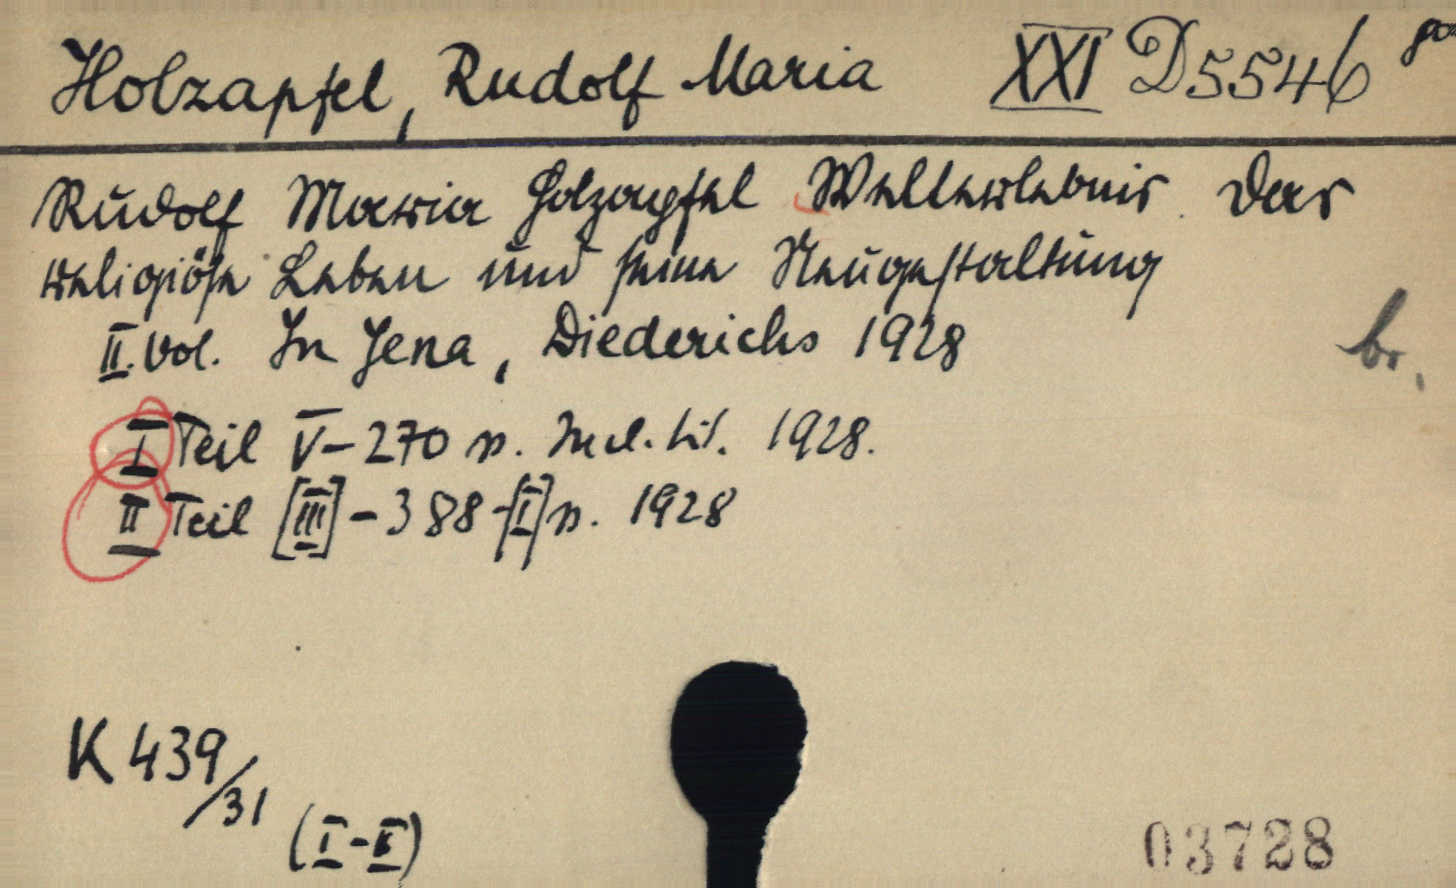 Holzapfel, Rudolf Maria XXI D5546
Rudolf Maria Holzapfel Welterlebnis. Das
religiöse Leben und seine Neugestaltung
II. Vol. In Jena, Diederichs 1928
br.
I Teil V-270 p. Incl. tit. 1928.
II Teil [III]-388-[I] p. 1928
K 439/31 (I-II)
03728